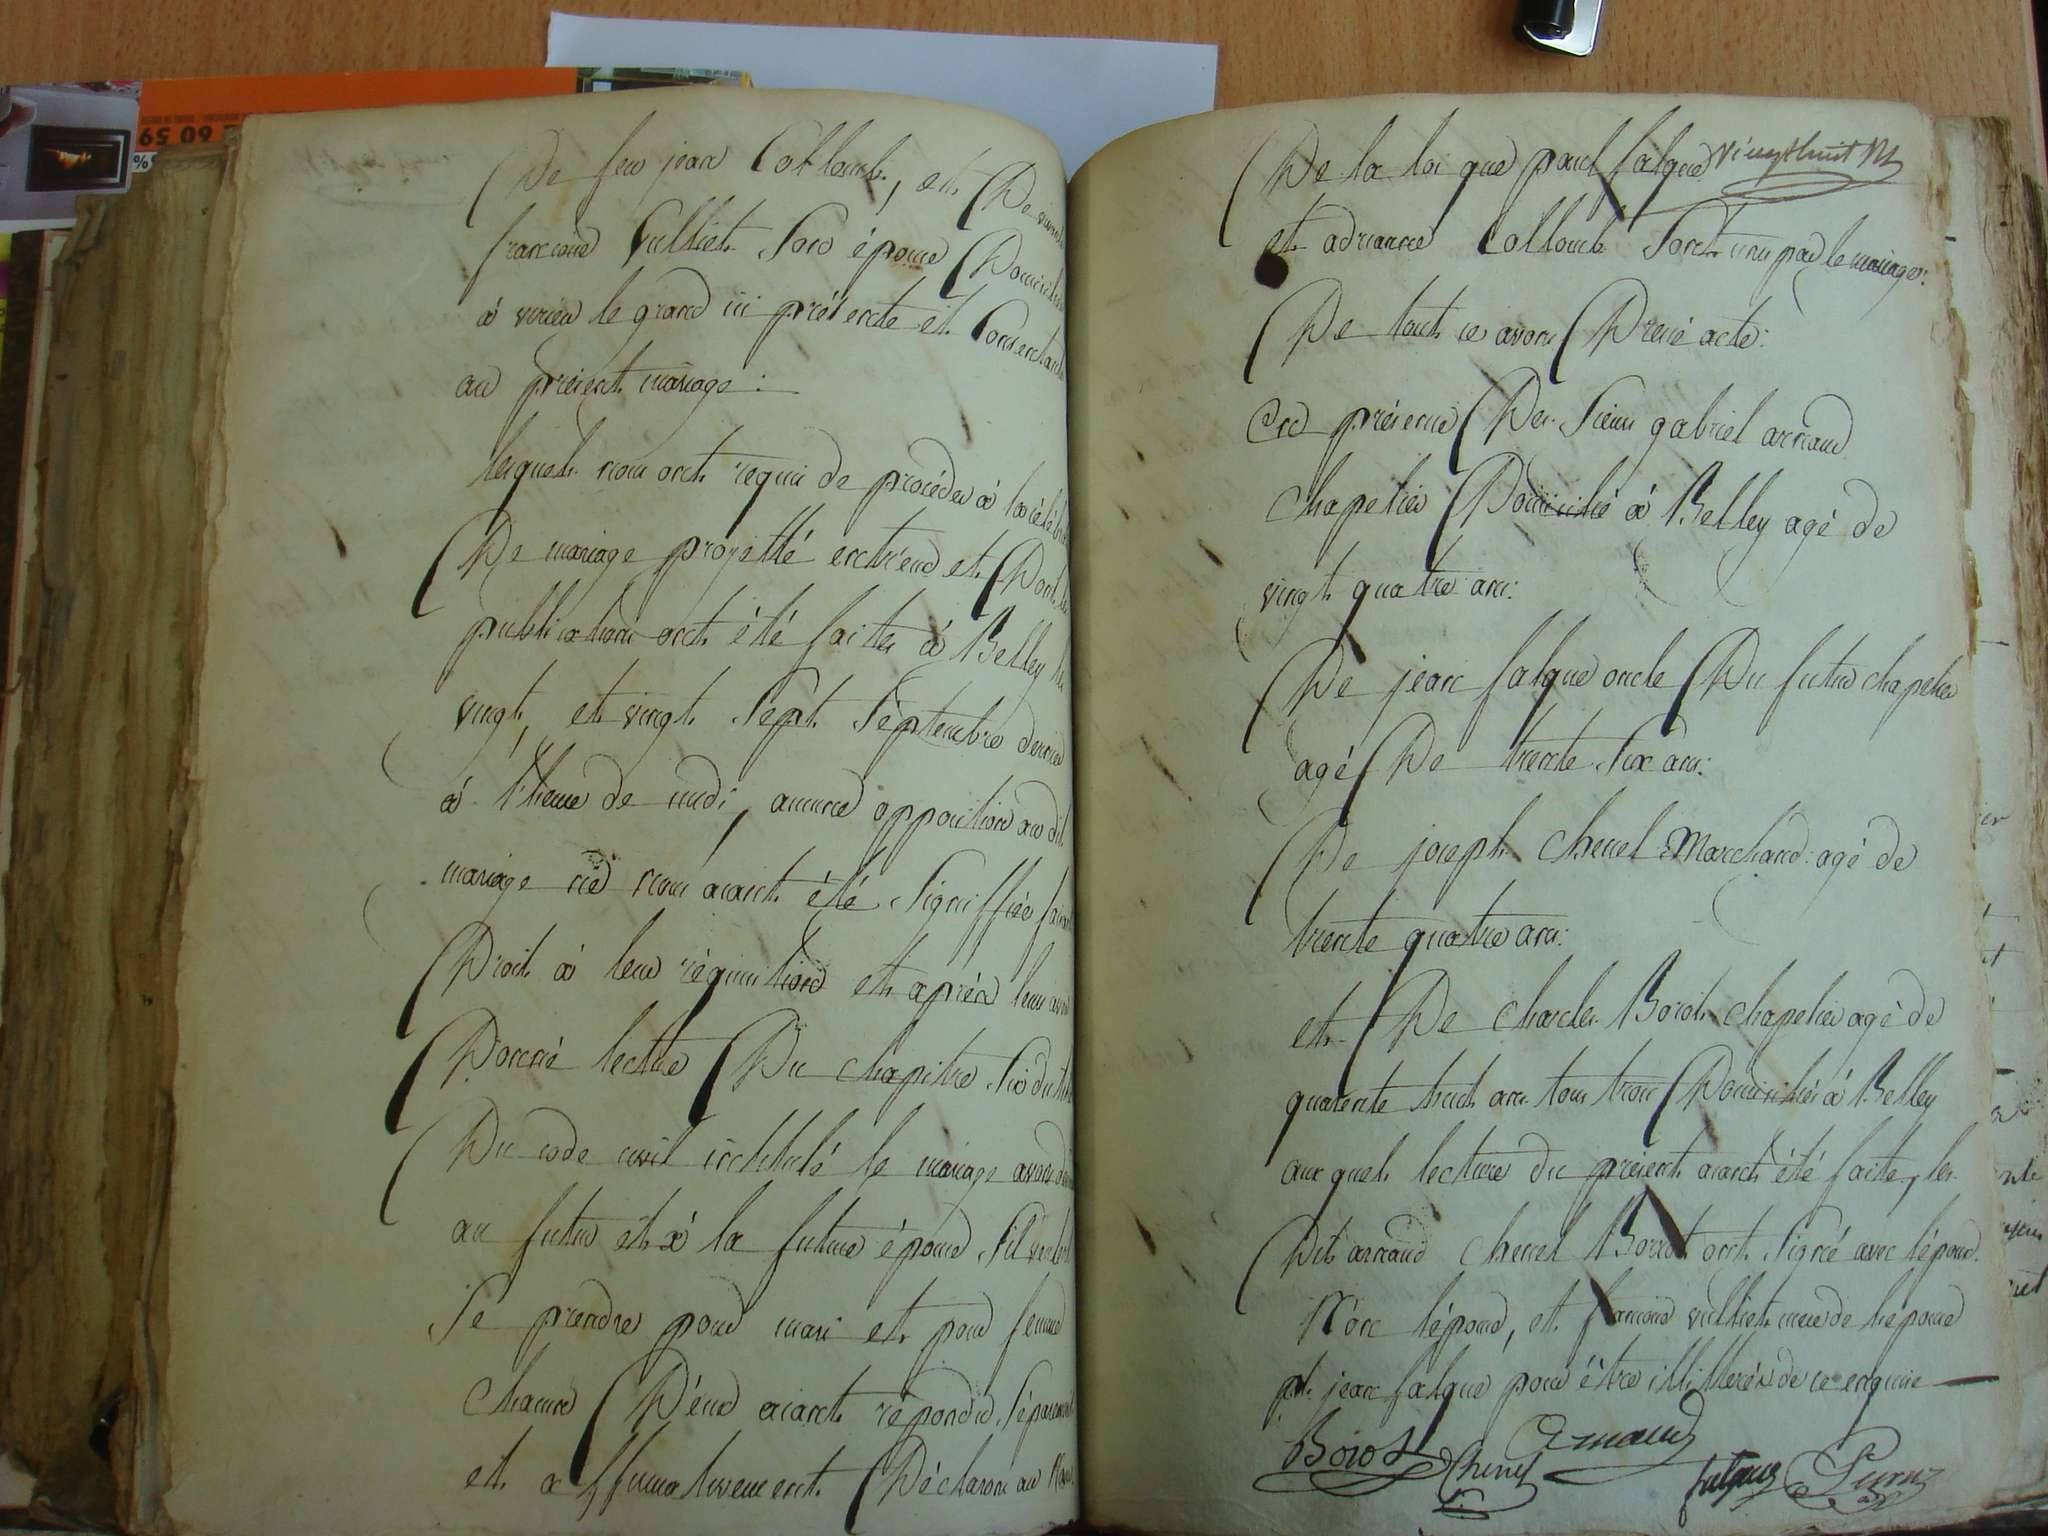 De feu jean Collomb, et De vivante
francoise Vulliet Son épouse Domiciliée
à virieu le grand ici présente et Consentante
au présent mariage :
lesquels nous ont requis de procéder à la célébration
De mariage projetté entr'eux et Dont les
publications ont été faites à Belley les
vingt, et vingt Sept Septembre dernier
à l'heure de midi, aucune opposition au dit
mariage ne nous aiant été Signiffiée faisant
Droit à leur réquisition et après leur avoir
Donné lecture Du chapitre Six du titre
Du code civil intitulé le mariage avons demandé
au futur et à la future épouse S'il veulent
Se prendre pour mari et pour femme
chacun D'eux aiant répondu Séparement
et affirmativement Déclarons au Nom
De la loi que paul falque vingthuit
et adrianne Collomb Sont unis par le mariage:
De tout ce avons Dressé acte:
En présence Des Sieurs gabriel arnaud
chapelier Domicilié à Belley agé de
vingt quatre ans:
De jean falque oncle Du futur chapelier
agé De trente Six ans:
De joseph chenel Marchand agé de
trente quatre ans:
et De charles Boiot chapelier agé de
quarente huit ans tous trois Domiciliés à Belley
aux quels lecture du présent aiant été faite, les
Dits arnaud chenel Boiot ont Signé avec l'époux
Non l'épouse, et francoise vulliet mere de l'épouse
jean falque pour être illitterés de ce enquis
Boiot
Chenel
Arnaud
falque
65 09
%